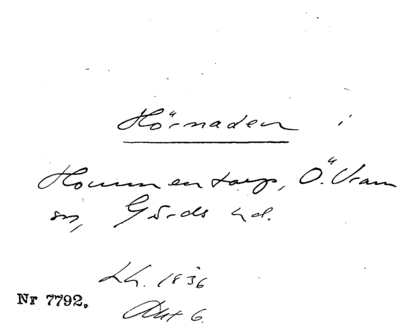 Hörnaden i
Hommentorp, Ö. Vram
sn, Gärds hd.
Lh. 1836
Akt 6.
Nr 7792.